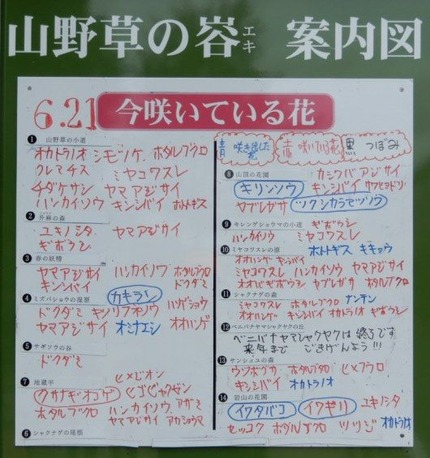 山野草の峪 エキ 案内図
6.21 今咲いている花
青 咲き出した花 赤 咲いている花 黒 つぼみ
1 山野草の小道
オカトラノオ シモツケ ホタルブクロ
クレマチス ミヤコワスレ
チダケサシ ヤマアジサイ
ハンカイソウ キンシバイ ホトトギス
2 升麻の森
ユキノシタ ヤマアジサイ
ギボウシ
3 春の妖精
ヤマアジサイ ハンカイソウ ホタルブクロ
キンシバイ ドクダミ
4 ミズバショウの湿原
カキラン
ドクダミ キツリフネソウ ハンゲショウ
ヤマアジサイ オミナエシ オオハンゲ
5 サギソウの谷
ドクダミ
7 地蔵平
ヒメジオン
クサナギオゴケ ヒゴシャジン アザミ
ホタルブクロ ハンカイソウ
ヤマアジサイ アカショウマ
6 シャクナゲの尾根
8 山頂の花園
カシワバアジサイ
キリンソウ キンシバイ サワヒヨドリ
ヤブレガサ ツクシカラマツソウ
9 キレンゲショウマの小道
ギボウシ
ハンカイソウ ミヤコワスレ
10 ミヤコワスレの原
ホトトギス キキョウ
オオハンゲ キンシバイ
ミヤコワスレ ハンカイソウ ヤマアジサイ
オオバギボウシ ヤブレガサ ホタルブクロ
11 シャクナゲの森
ミヤコワスレ ホタルブクロ ナンテン
オオハンゲ キンシバイ オカトラノオ ヤブカンゾウ
12 ベニバナヤマシャクヤクの丘
ベニバナヤマシャクヤクは終了です
来年まで ごきげんよう!!!
13 サンショユの森
ウツボグサ ホタルブクロ ヒメフウロ
キンシバイ オカトラノオ
14 岩山の花園
イワタバコ イワギリ ユキノシタ
セッコク ホタルブクロ ツツジ オカトラノオ